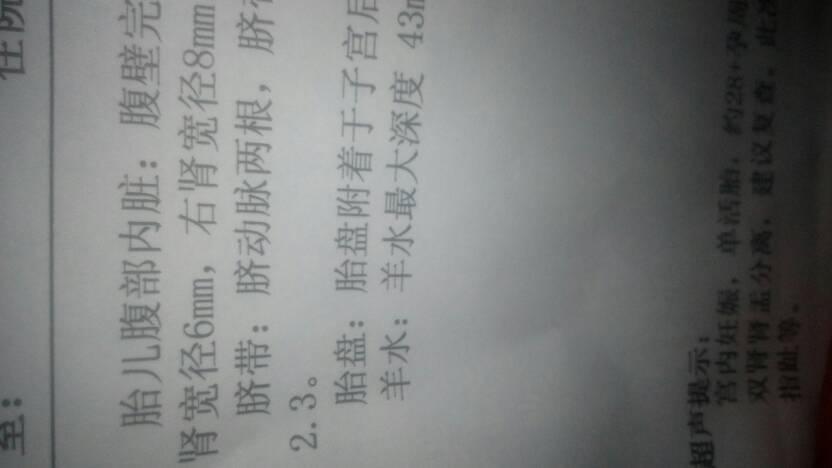 住院
至：
胎儿腹部内脏：腹壁完
肾宽径6mm，右肾宽径8mm
脐带：脐动脉两根，脐
2.3。
胎盘：胎盘附着于子宫后
羊水：羊水最大深度 43m
超声提示：
宫内妊娠，单活胎，约28+孕周
双肾肾盂分离，建议复查。此次
指趾等。